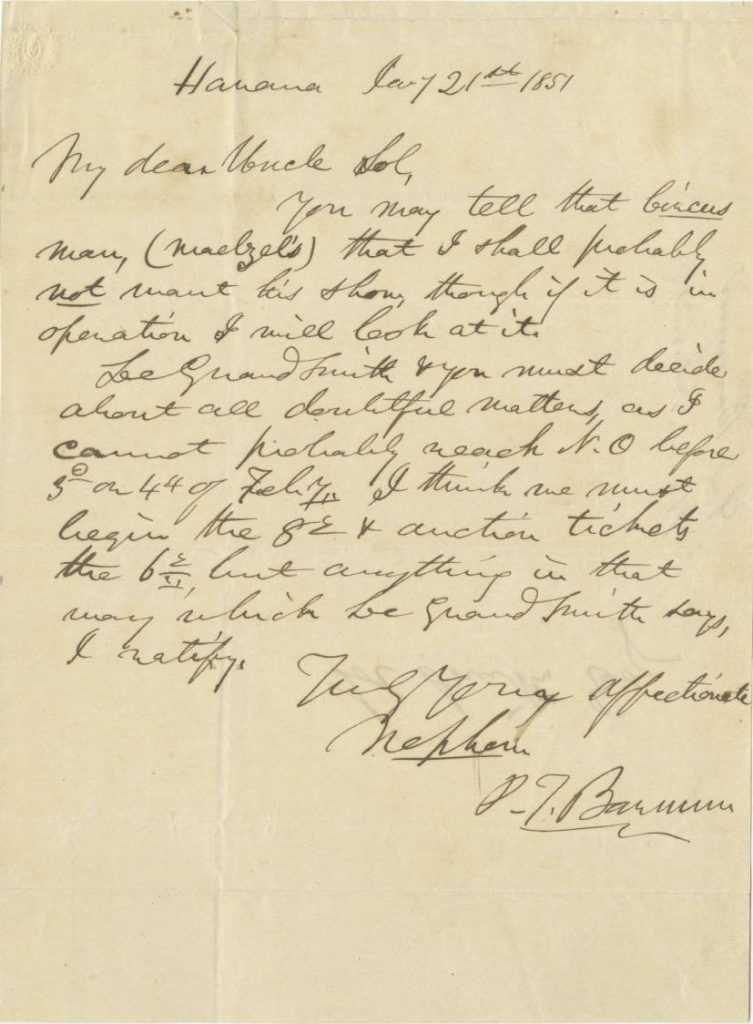 Havana Jany 21st 1851
My dear Uncle Sol,
You may tell that Circus
man, (Maelzel's) that I shall probably
not want his show, though if it is in
operation I will look at it.
Le Grand Smith & you must decide
about all doubtful matters, as I
cannot probably reach N.O before
3d or 4th of Feby. I think we must
begin the 8th & auction tickets
the 6th, but anything in that
way which Le Grand Smith says,
I ratify.
Truly Your affectionate
Nephew
P. T. Barnum